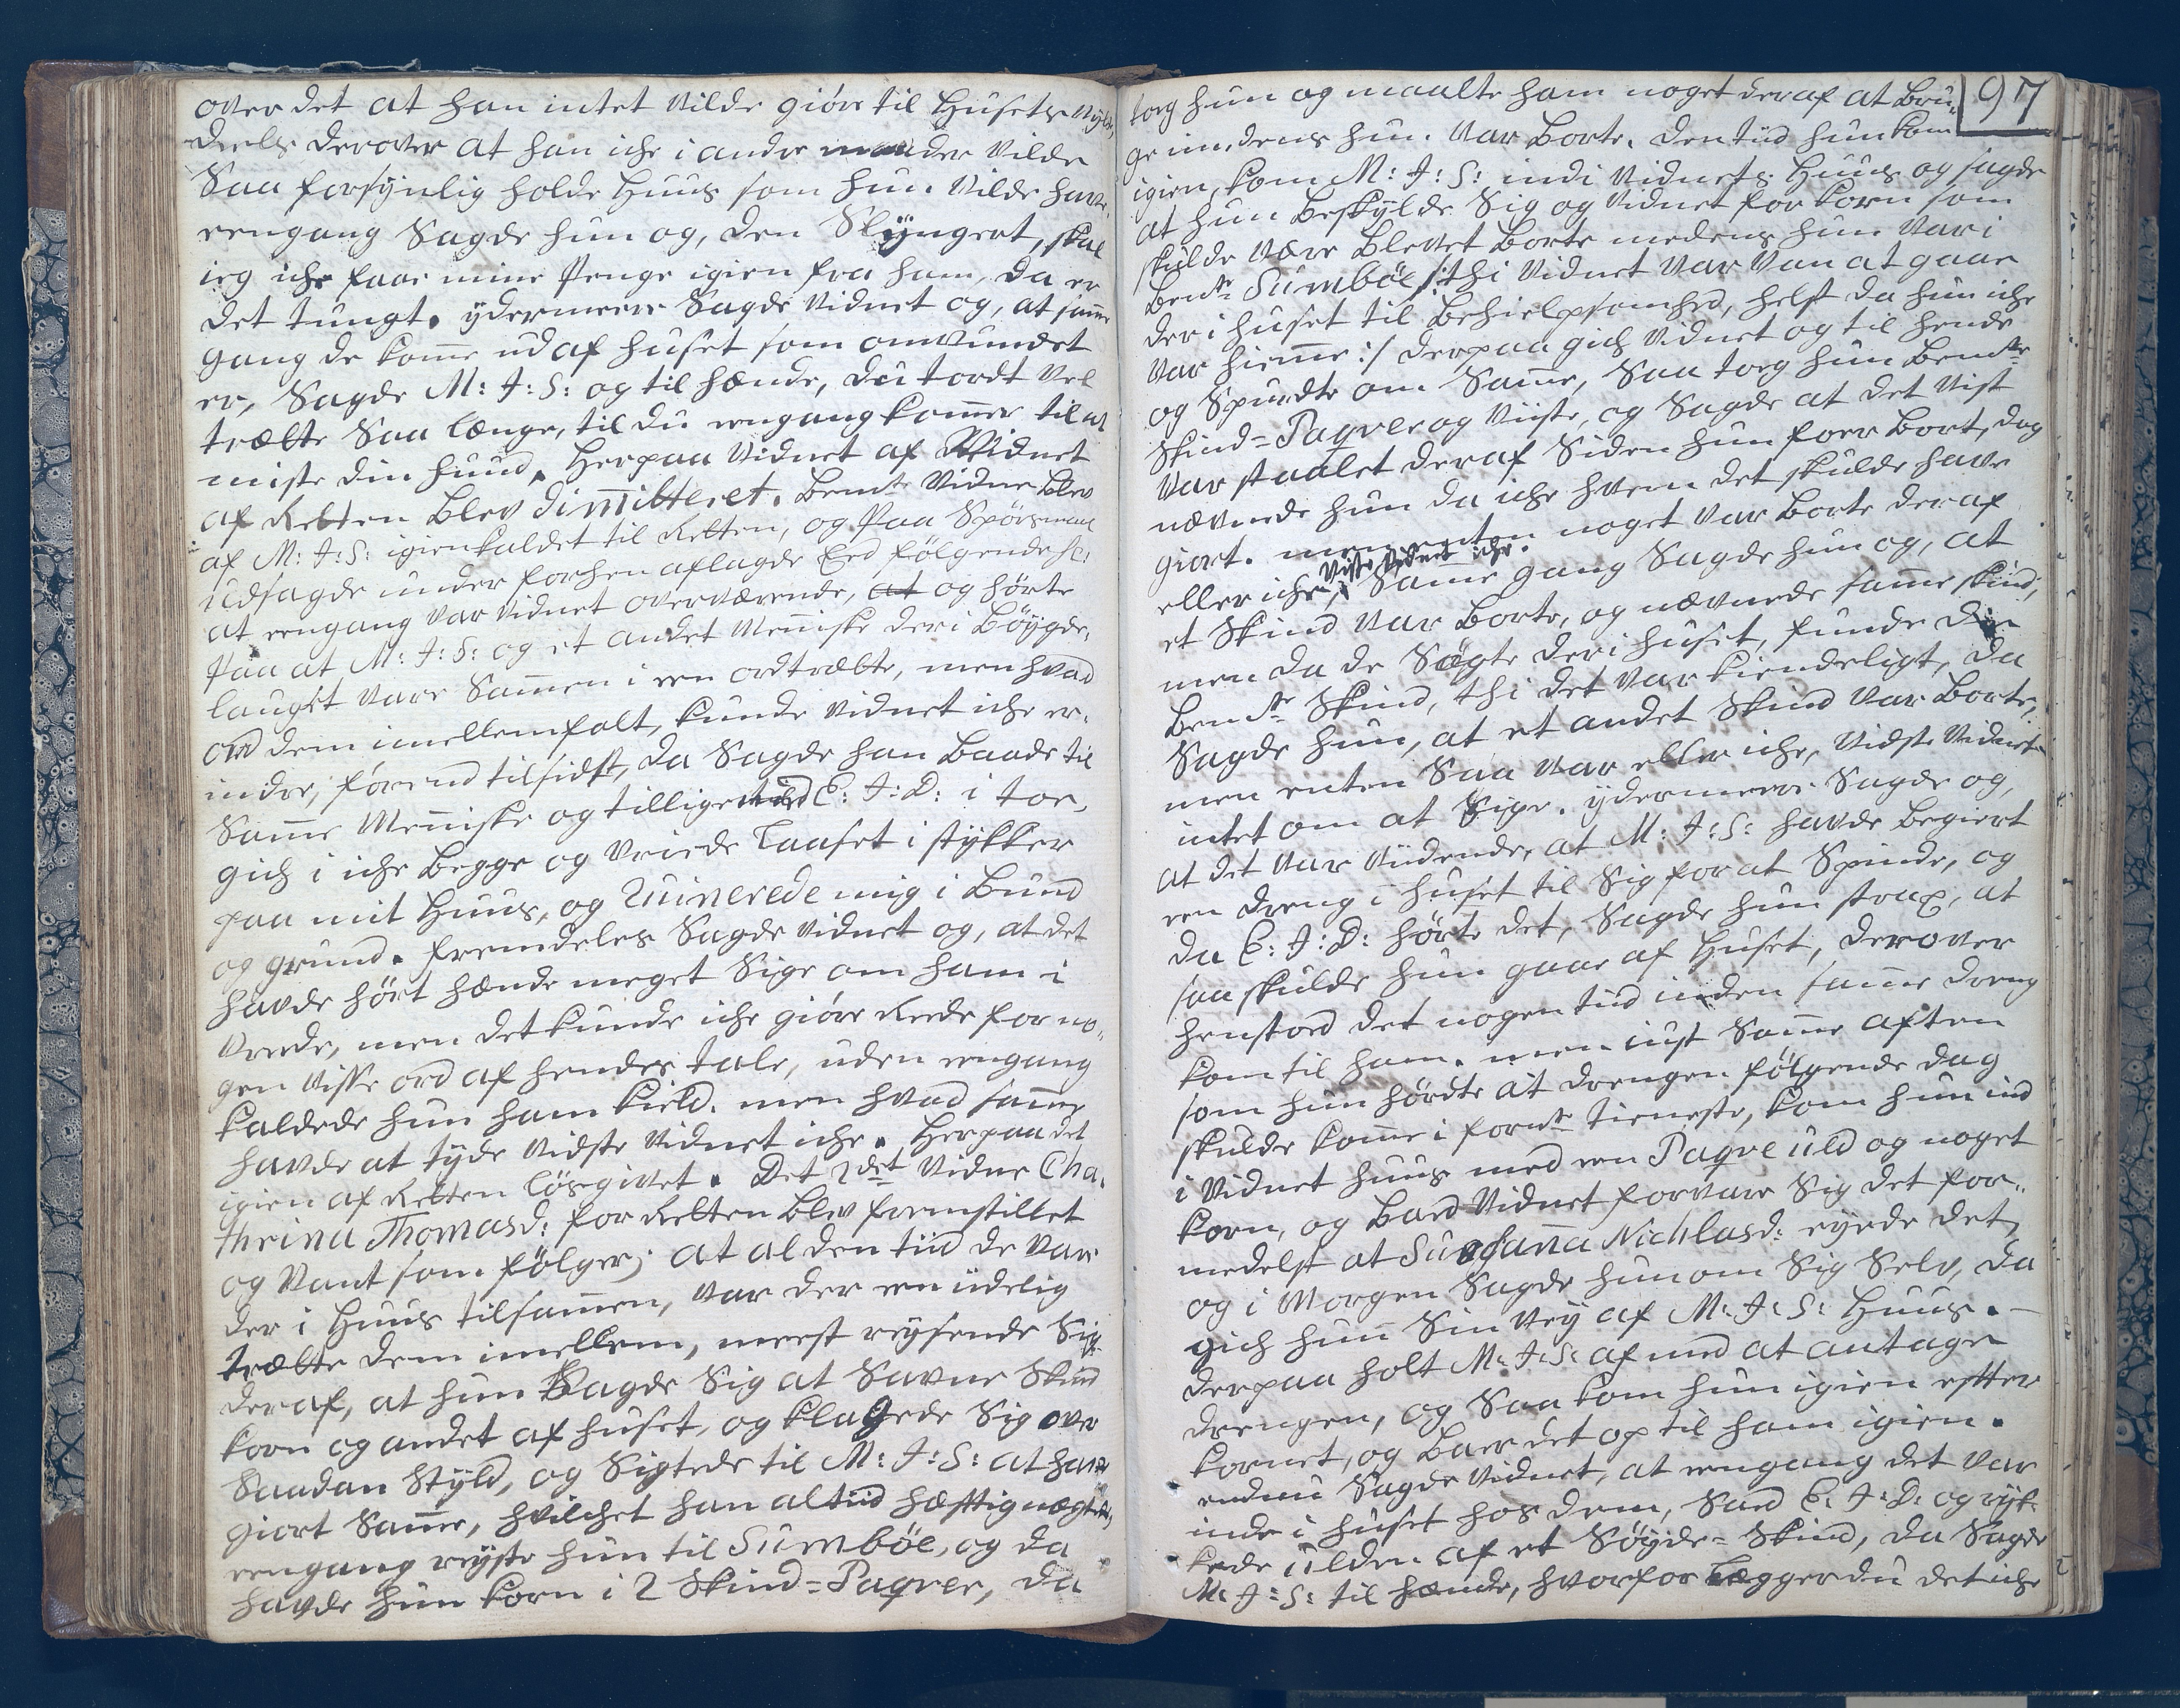 over det at han intet vilde giöre til Husets nytte,
deels derover at han iche i andre maader vilde
Saa forsÿnlig holde Huus som hun vilde have.
eengang Sagde hun og, den Slÿngert, skal
ieg iche faae mine Penge igien fra ham, da er
det tungt. ÿdermeere Sagde Vidnet og, at samme
gang de komme ud af huset som omvundet
er, Sagde M: J: S: og til hænde, du tordt vel
trætte Saa længe, til du eengang kommer til at
miste din hund. Herpaa Vidnet af Vidnet
af Retten blev dimitteret. bemte Vidne blev
af M: J: S: igienkaldet til Retten, og Paa Spörsmaal
udsagde under forhen aflagde Eed fölgende sc:
at eengang var Vidnet overværende, at og hörte
Paa at M: J: S: og et andet Menniske der i böÿgde,
lauget vare Sammen i een ordtrætte, men hvad
ord dem imellem falt, kunde Vidnet iche er,
indre, förend tilsidst, da Sagde han baade til
Samme Menniske og tillige med C: J: D: i tor,
gich i iche begge og vriede Laaset i stÿkker
paa mit Huus, og Ruinerede mig i bund
og grund. fremdeles Sagde Vidnet og, at det
havde hört hænde meget Sige om ham i
vrede, men det kunde iche giöre Rede for no,
gen visse ord af hendes tale, uden eengang
kaldede hun ham kield. men hvad samme
havde at tÿde vidste Vidnet iche. Herpaa det
igien af Retten lösgivet. Det 2det Vidne Cha,
thrina Thomasd: for Retten blev fremstillet
og Vant som fölger; at al den tiid de var
der i Huus tilsammen, var der een üdelig
trætte dem imellem, meest reÿsende Sig
deraf, at hun Sagde Sig at Savne Skind
korn og andet af huset, og klagede Sig over
Saadan Stÿld, og Sigtede til M: J: S: at have
giort Samme, hvilchet han altiid hæfftig nægtede,
eengang reÿste hun til Sumböe, og da
havde hun korn i 2 Skind=Paqver, da
97
torg hun og maalte ham noget deraf at bru,
ge imedens hun var borte. den tiid hun kom
igien, kom M: J: S: ind i Vidnets Huus og sagde
at hun beskÿlde Sig og Vidnet for korn som
skulde være blevet borte medens hun var i
bemte Sumböe /: thi Vidnet var van at gaae
der i huset til behielpsomhed, helst da hun iche
var hiemme :/ derpaa gich Vidnet og til hende
og Spurdte om Samme, Saa torg hun bemte
Skind=Paqver og viiste, og Sagde at det vist
var staalet deraf Siden hun foer bort, dog
nævnede hun da iche hvem det skulde have
giort. men enten noget var borte deraf
eller iche, viste Vidnet iche. Samme gang Sagde hun og, at
et Skind var borte, og nævnede samme skind,
men da de Sögte der i huset, funde de
bemte Skind, thi det var kiendeligt, da
Sagde hun, at et andet Skind var borte,
men enten Saa var eller iche, vidste Vidnet
intet om at Sige. ÿdermeere Sagde og,
at det var viidende, at M: J: S: havde begiert
een dreng i huset til Sig for at Spinde, og
da C: J: D: hörte det, Sagde hun strax, at
saa skulde hun gaae af Huset, derover
henstoed det nogen tiid inden samme dreng
kom til ham. men iust Samme aften
som hun hördte at drengen fölgende dag
skulde komme i formte tieneste, kom hun ind
i Vidnet huus med een Paqve uld og noget
korn, og baed Vidnet forvare Sig det for,,
medelst at Susanna Nichlasd: eÿede det,
og i Morgen Sagde hun om Sig Selv, da
gich hun Sin veÿ af M: J: S: Huus. —
derpaa holt M: J: S: af med at antage
drengen, og Saa kom hun igien effter
kornet, og baer det op til ham igien.
endnu Sagde Vidnet, at eengang det var
inde i huset hos dem, Sad C: J: D: og rÿk,
kede ulden af et Söÿde=Skind, da Sagde
M: J: S: til hænde, hvorfor lægger du det iche